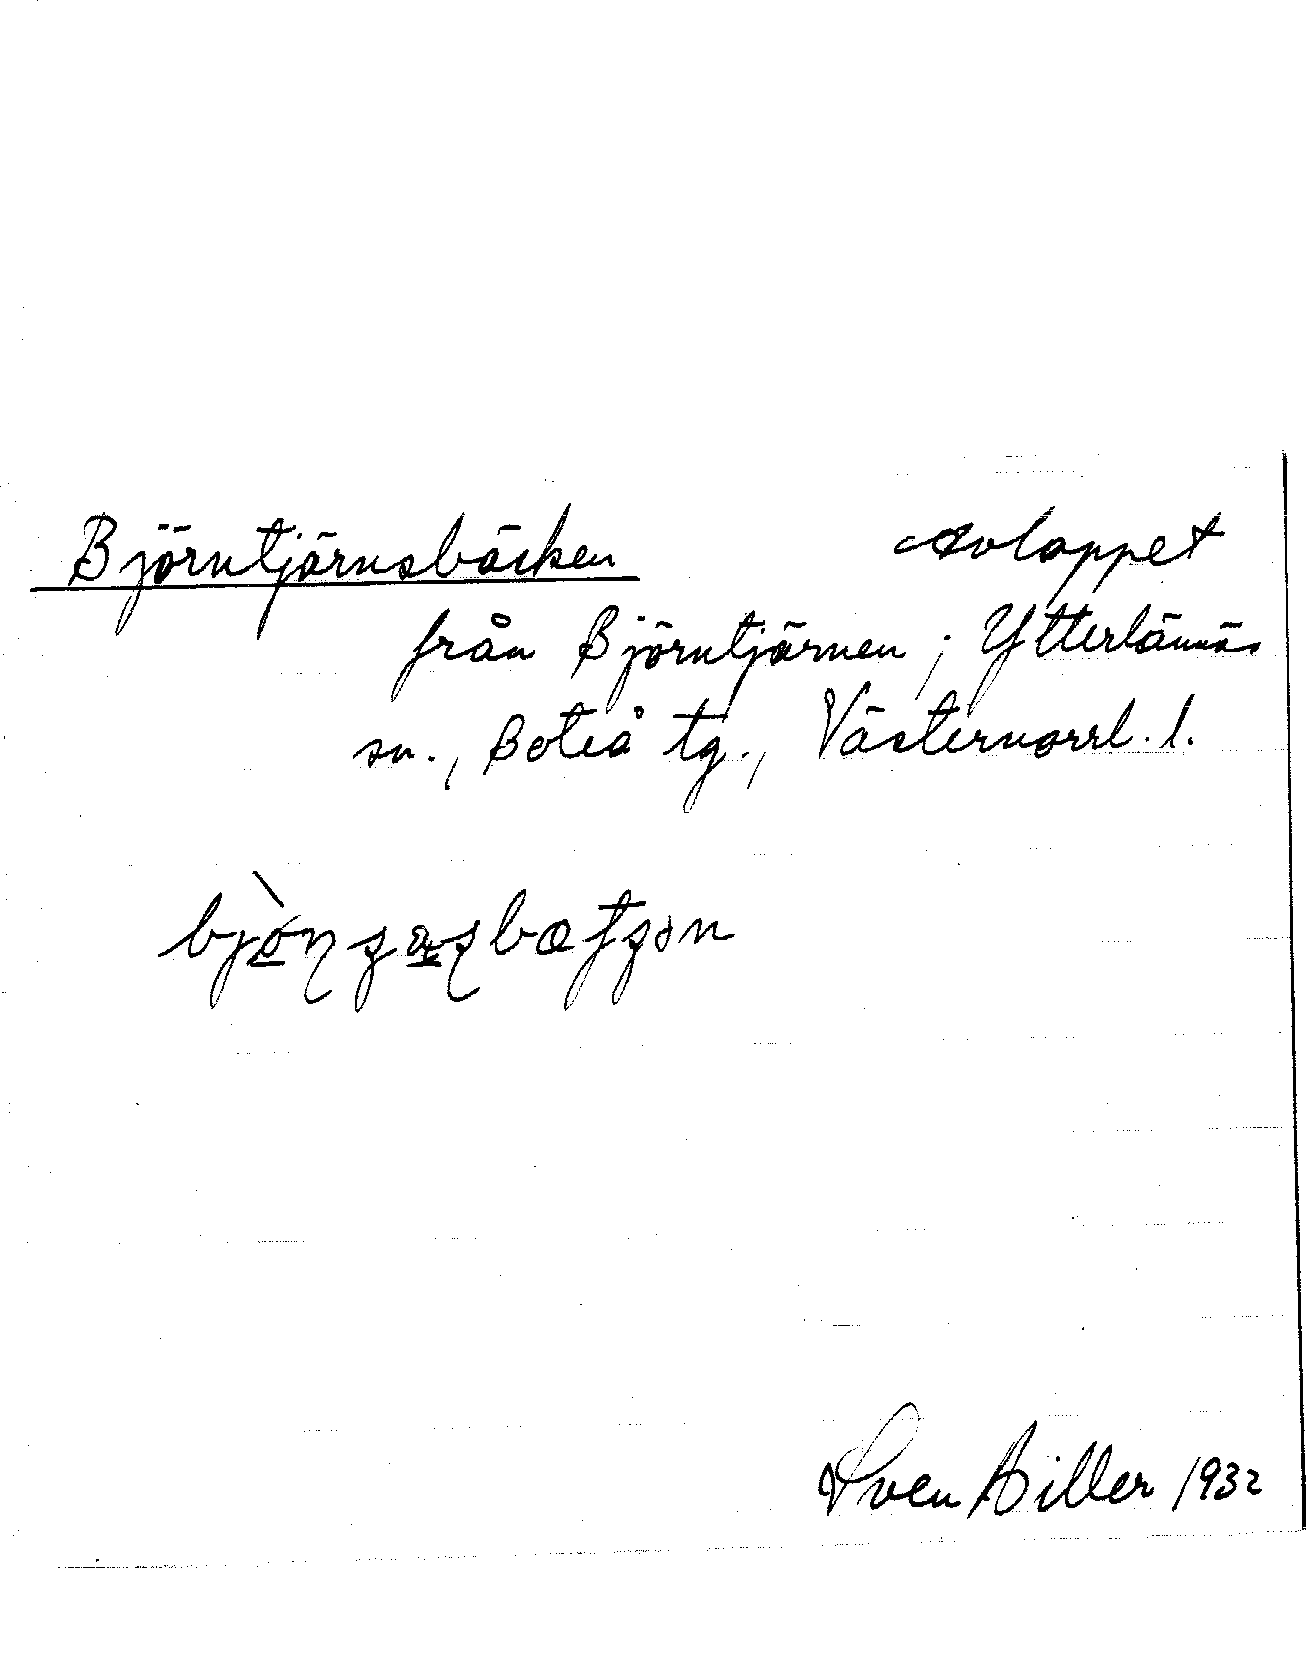 Björntjärnsbäcken Avloppet
från Björntjärnen; Ytterlännäs
sn., Boteå tg., Västernorrl. l.
Sven Hiller 1932